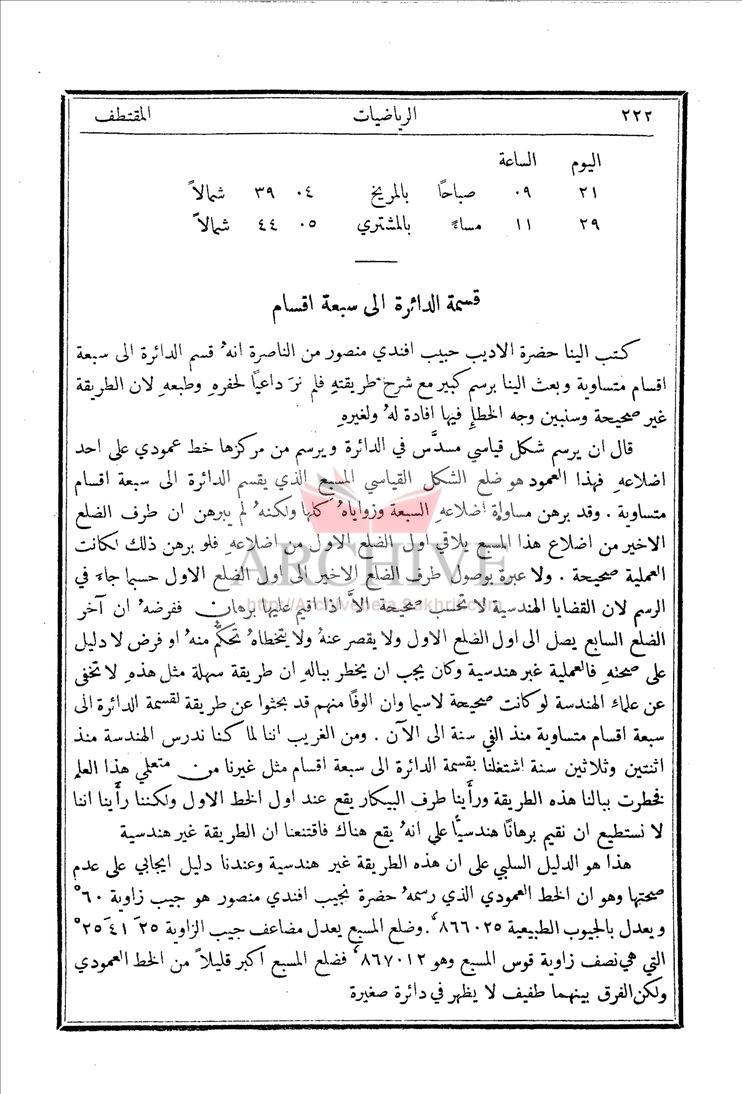 ٢٢٢ الرياضيات المقتطف
اليوم الساعة
٢١ ٠٩ صباحًا بالمريخ ٠٤ ٣٩ شمالاً
٢٩ ١١ مساءً بالمشتري ٠٥ ٤٤ شمالاً
قسمة الدائرة الى سبعة اقسام
كتب الينا حضرة الاديب حبيب افندي منصور من الناصرة انهُ قسم الدائرة الى سبعة
اقسام متساوية وبعث الينا برسم كبير مع شرح طريقتهِ فلم نرَ داعيًا لحفرهِ وطبعهِ لان الطريقة
غير صحيحة وسنبين وجه الخطإِ فيها افادة لهُ ولغيرهِ
قال ان يرسم شكل قياسي مسدَّس في الدائرة ويرسم من مركزها خط عمودي على احد
اضلاعهِ فهذا العمود هو ضلع الشكل القياسي المسبع الذي يقسم الدائرة الى سبعة اقسام
متساوية . وقد برهن مساواة اضلاعهِ السبعة وزواياهُ كلها ولكنهُ لم يبرهن ان طرف الضلع
الاخير من اضلاع هذا المسبع يلاقي اول الضلع الاول من اضلاعهِ فلو برهن ذلك لكانت
العملية صحيحة . ولا عبرة بوصول طرف الضلع الاخير الى اول الضلع الاول حسبما جاءَ في
الرسم لان القضايا الهندسية لا تحسب صحيحة الاَّ اذا اقيم عليها برهان ففرضهُ ان آخر
الضلع السابع يصل الى اول الضلع الاول ولا يقصر عنهُ ولا يتخطاهُ تحكُّم منهُ او فرض لا دليل
على صحتهِ فالعملية غير هندسية وكان يجب ان يخطر ببالهِ ان طريقة سهلة مثل هذهِ لا تخفى
عن علماء الهندسة لو كانت صحيحة لاسيما وان الوفًا منهم قد بحثوا عن طريقة لقسمة الدائرة الى
سبعة اقسام متساوية منذ الفي سنة الى الآن . ومن الغريب اننا لما كنا ندرس الهندسة منذ
اثنتين وثلاثين سنة اشتغلنا بقسمة الدائرة الى سبعة اقسام مثل غيرنا من متعلمي هذا العلم
فخطرت ببالنا هذه الطريقة ورأَينا طرف البيكار يقع عند اول الخط الاول ولكننا رأَينا اننا
لا نستطيع ان نقيم برهانًا هندسيًّا على انهُ يقع هناك فاقتنعنا ان الطريقة غير هندسية
هذا هو الدليل السلبي على ان هذه الطريقة غير هندسية وعندنا دليل ايجابي على عدم
صحتها وهو ان الخط العمودي الذي رسمهُ حضرة نجيب افندي منصور هو جيب زاوية ٦٠°
ويعدل بالجيوب الطبيعية ٨٦٦٠٢٥‘. وضلع المسبع يعدل مضاعف جيب الزاوية ٢٥ ٤١َ ٢٥°
التي هي نصف زاوية قوس المسبع وهو ٨٦٧٠١٢‘ فضلع المسبع اكبر قليلاً من الخط العمودي
ولكن الفرق بينهما طفيف لا يظهر في دائرة صغيرة
ARCHIVE